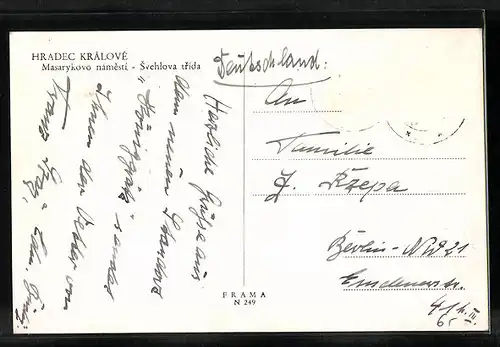 HRADEC KRÁLOVÉ
Masarykovo náměstí - Švehlova třída
Deutschland:
An
Familie
J. Krzepa
Berlin - NW 21
Emdenerstr.
Herzliche Grüße aus
dem neuen Standort
"Königgrätz" sendet
Ihnen der Vetter von
Franz
FRAMA
N 249